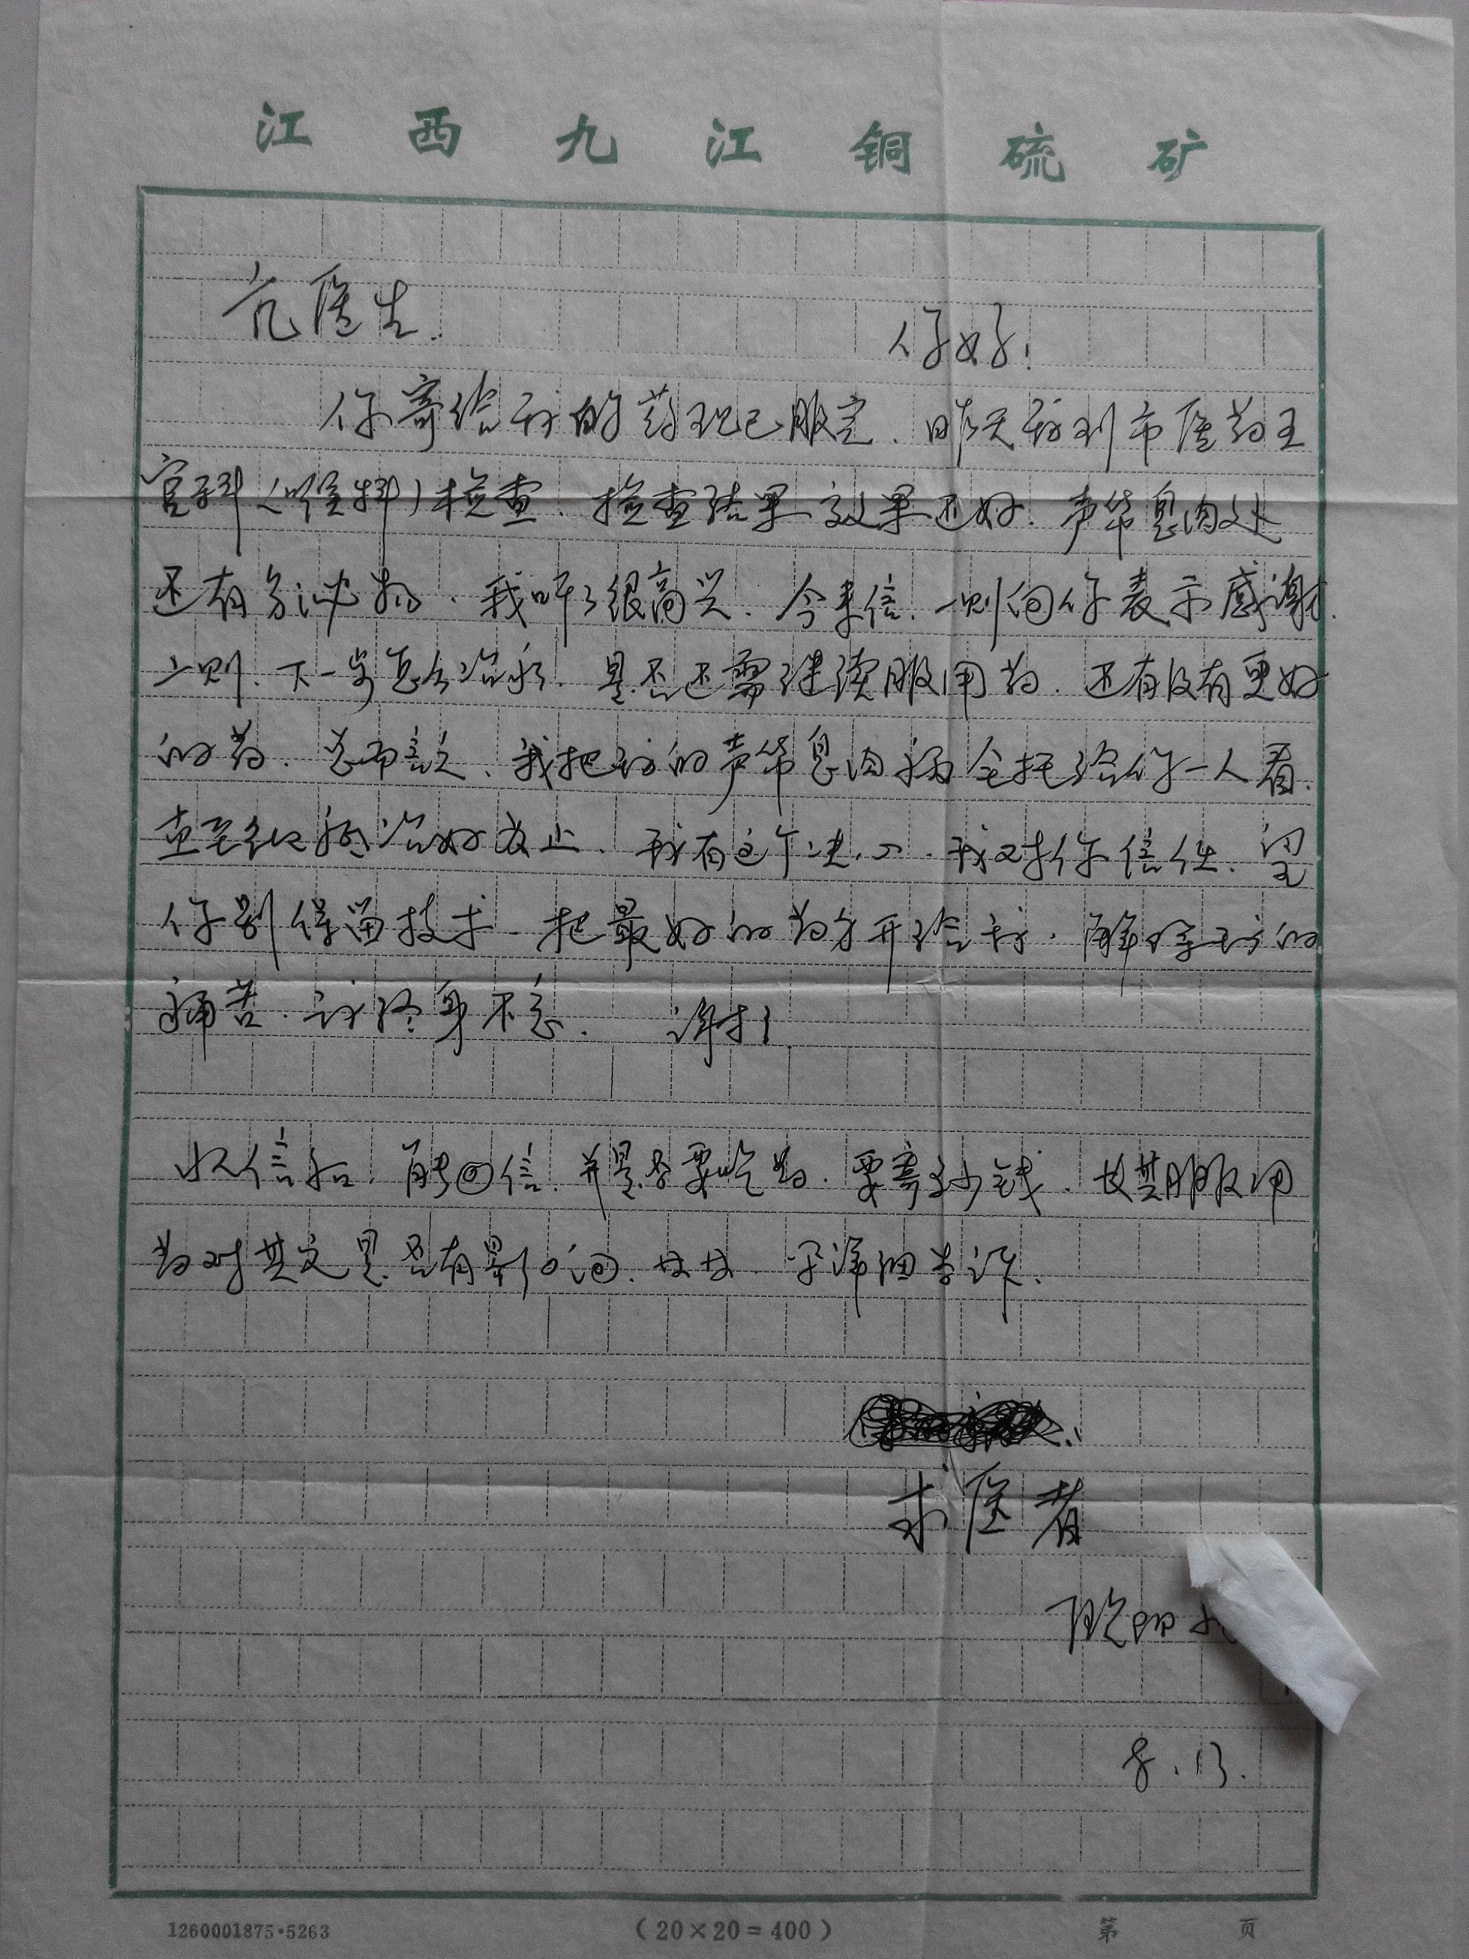 江西九江铜硫矿
危医生.
你好!
你寄给我的药现已服完.昨天我到市医药五
官科(喉科)检查.检查结果效果还好.声带息肉处
还有分泌物.我听了很高兴.今来信.一则向你表示感谢.
二则.下一步怎么治疗.是否还需继续服用药.还有没有更好
的药.总而言之、我把我的声带息肉病全托给你一人看.
直至彻底治好为止.我有这个决心.我对你信任.望
你别保留技术.把最好的药方开给我.解除我的
痛苦.我终身不忘.谢!
收信后.能回信.并是否要吃药.要寄多少钱.长期服用
药对其它是否有影响.等等.写详细告诉.
求医者
8.13.
1260001875·5263
(20×20=400)
第 页